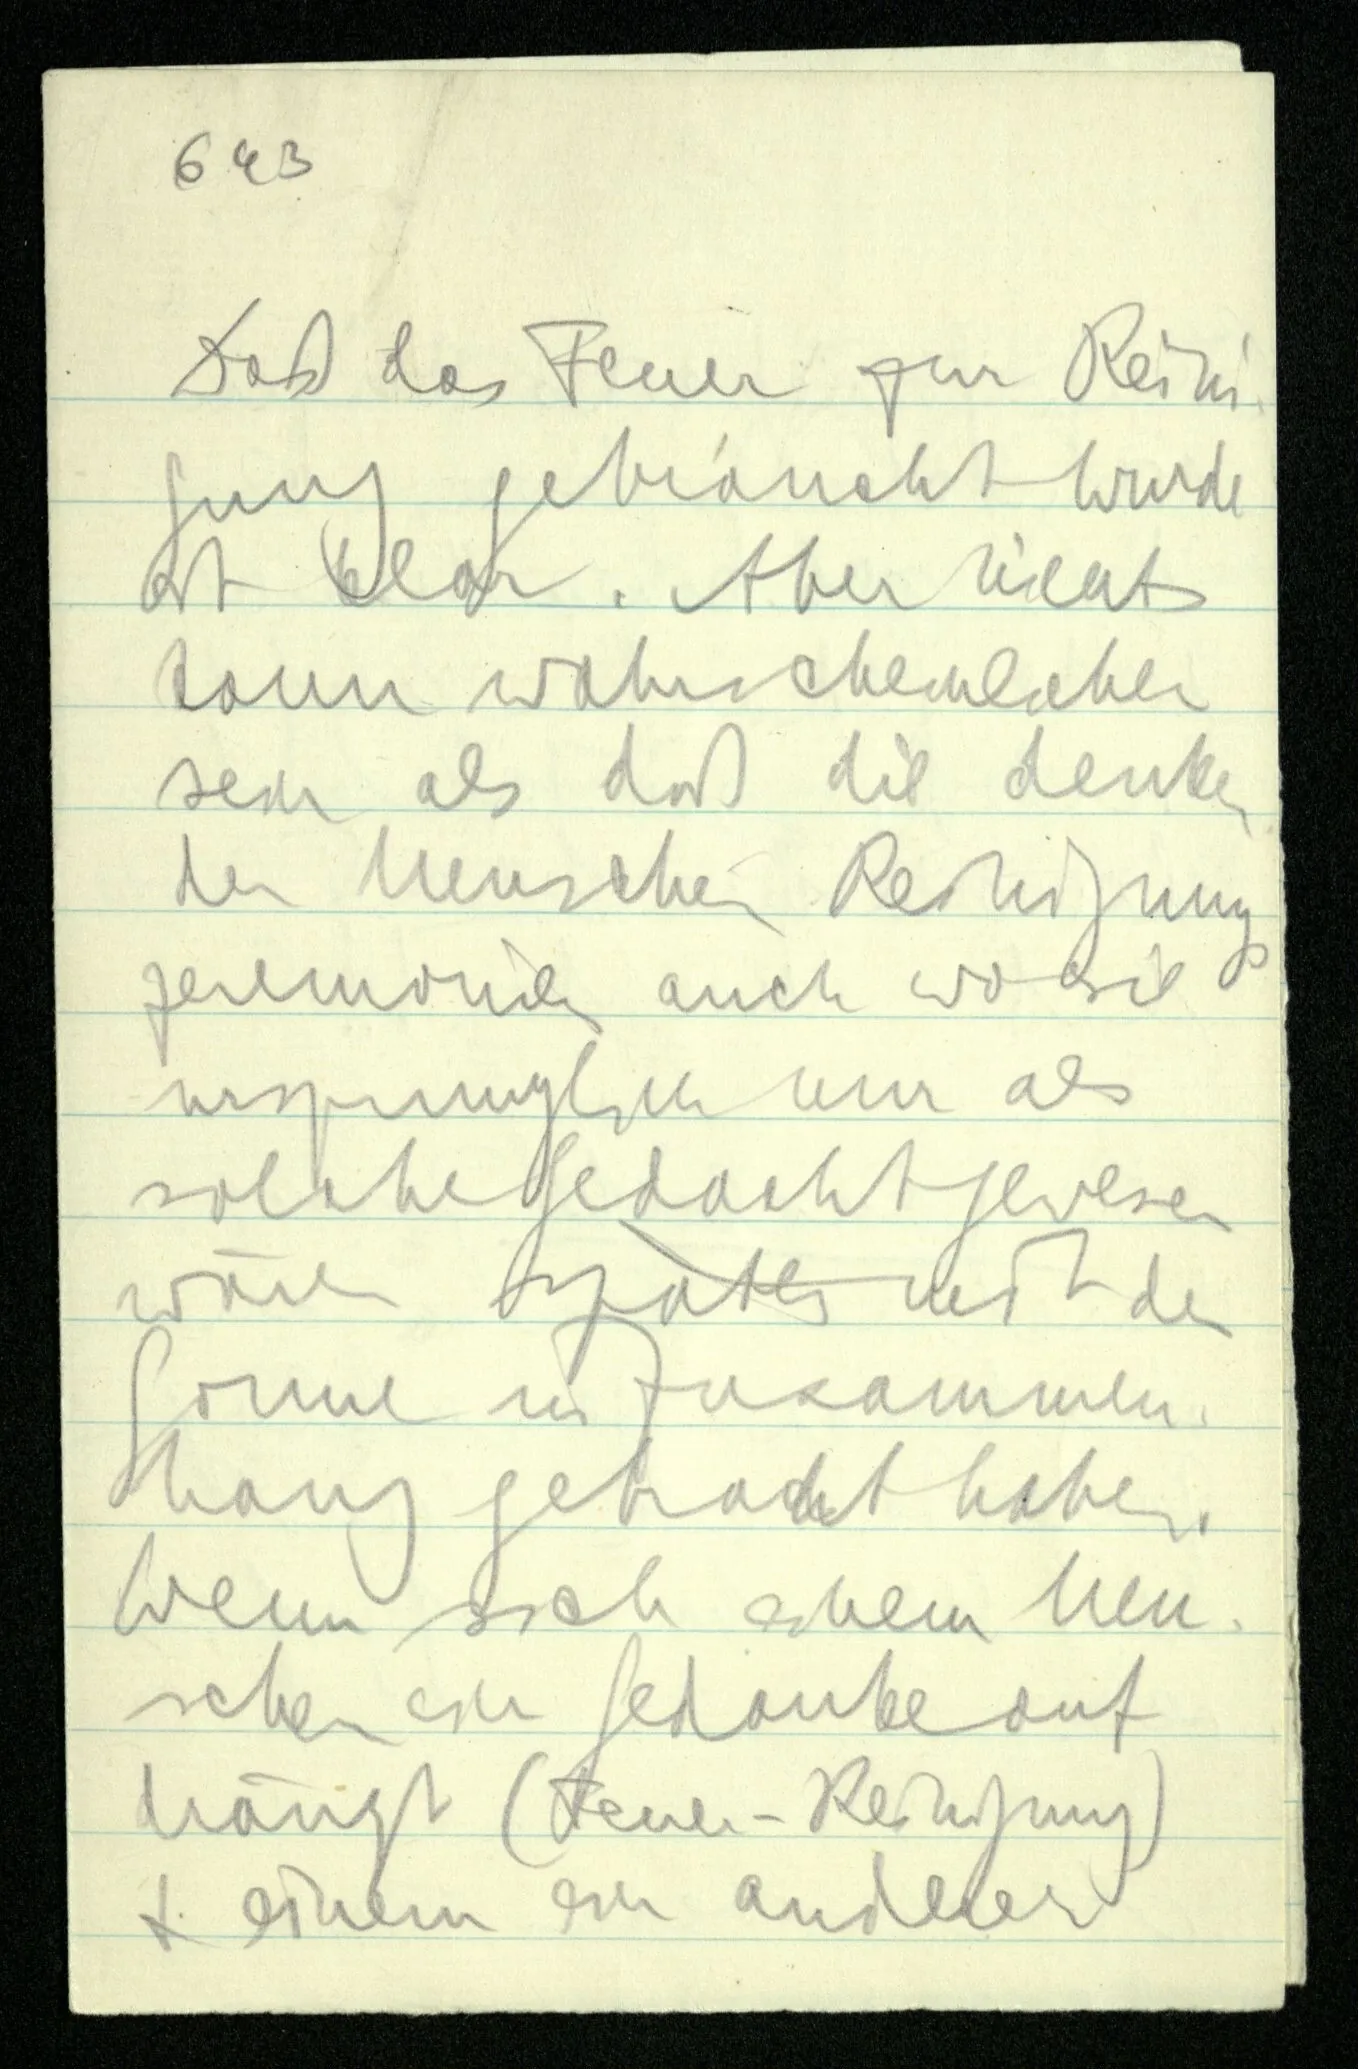 643
Daß das Feuer zur Reini-
gung gebraucht wurde
ist klar. Aber nichts
kann wahrscheinlicher
sein als daß die denken
den Menschen Reinigungs
zeremonien auch wo sie
ursprunglich nur als
solche gedacht gewesen
wären später mit der
Sonne in Zusammen-
hang gebracht haben.
Wenn sich einem Men-
schen ein Gedanke auf
drängt (Feuer-Reinigung)
& einem ein anderer